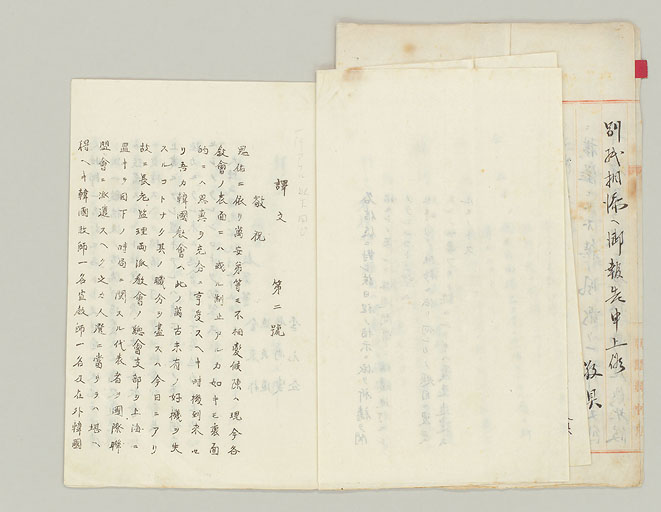 別紙相添ヘ御報告申上候
敬具
譯文 第二號
敬祝
恩佑ニ依リ萬安弟等モ不相變候陳ハ現今各
敎會ノ表面ニハ或ル制止アルカ如キモ裏面
的ニハ恩典ヲ充分ニ享受スヘキ時機到來セ
リ吾カ韓國敎會ハ此ノ萬古未有ノ好機ヲ失
スルコトナク其ノ職分ヲ盡スヘ今日ニアリ
故ニ長老監理兩派敎會ノ總會支部ヲ上海ニ
置キ目下ノ時局ニ関スル代表者ヲ國際聯
盟會ニ派遣スヘク之カ人選ニ當リテハ堪ヘ
得ヘキ韓國牧師一名宣敎師一名及在外韓國